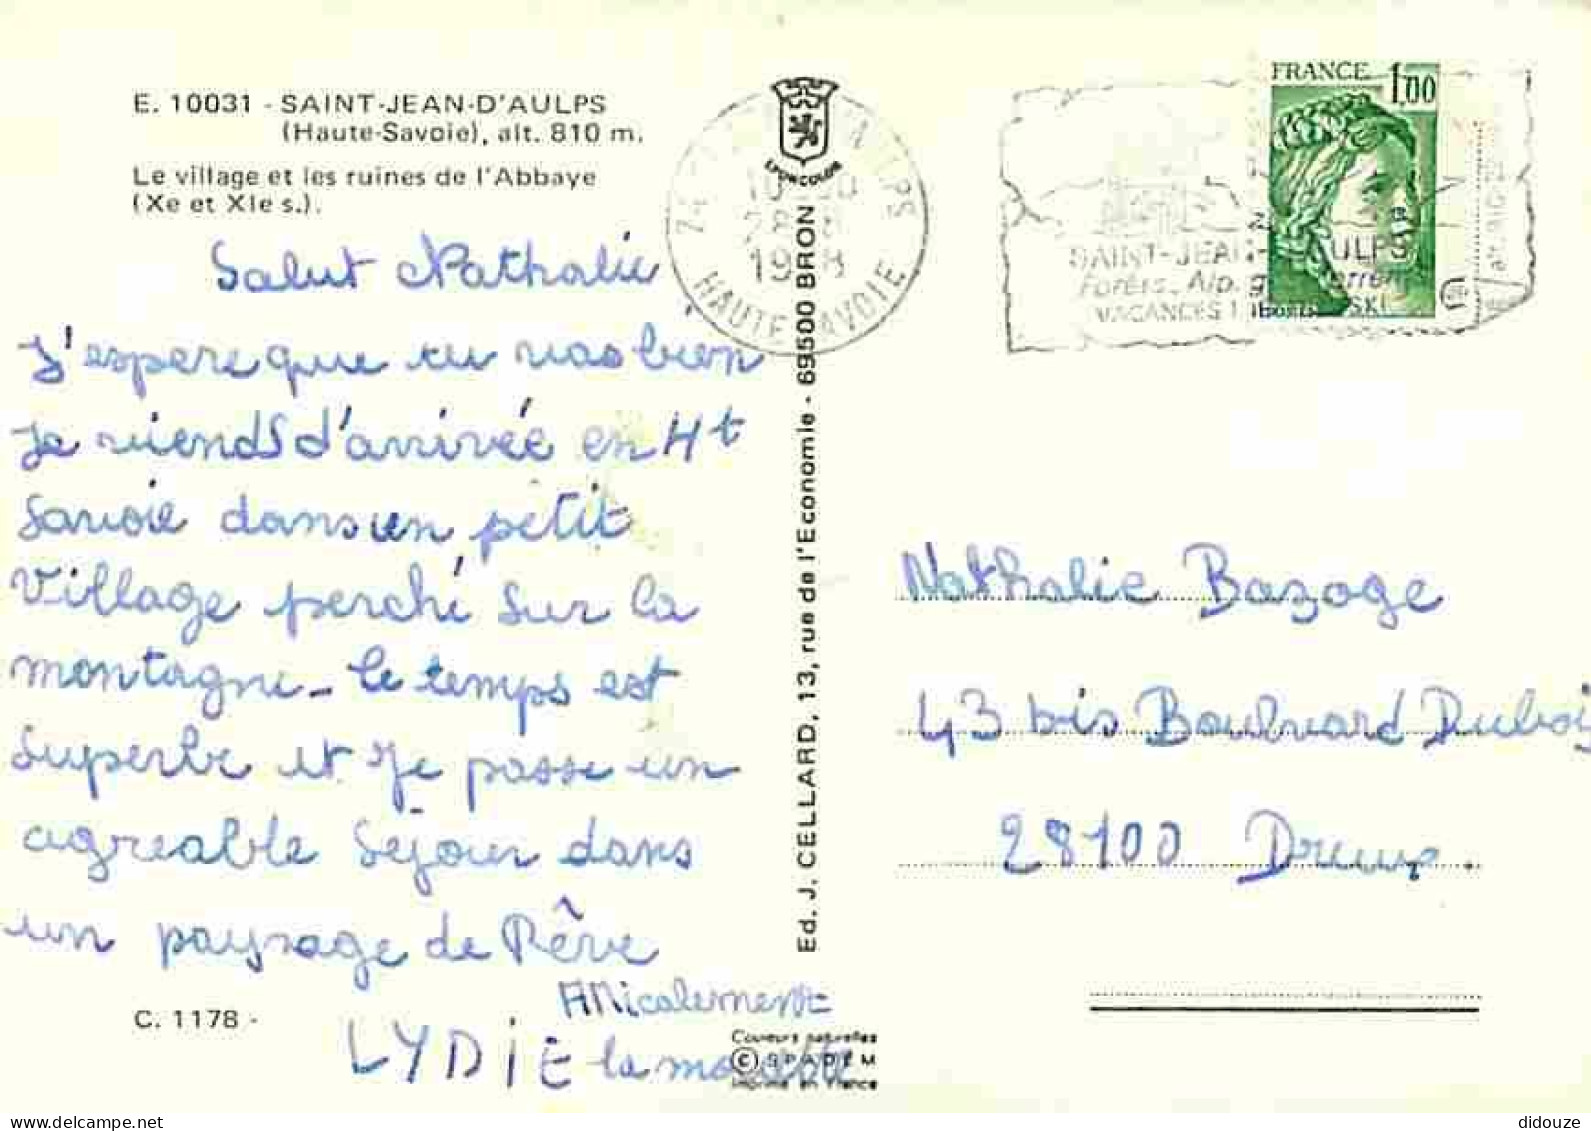 E. 10031 - SAINT-JEAN-D'AULPS
(Haute-Savoie), alt. 810 m.
Le village et les ruines de l'Abbaye
(Xe et XIe s.).
Salut Nathalie
J'espere que tu vas bien
Je viends d'arrivée en Ht
Savoie dans un petit
Village perché sur la
montagne - le temps est
superbe et Je passe un
agreable séjour dans
un paysage de Rêve
AMicalement
LYDiE la
C. 1178 -
Couleurs naturelles
© SPADEM
Imprimé en France
Ed. J. CELLARD, 13, rue de l'Economie - 69500 BRON
LYONCOLOR
74
HAUTE SAVOIE
SAINT-JEAN- AULPS
Forêts, Alp.
VACANCES
SKI
FRANCE 1,00
Nathalie Bazoge
43 bis Boulvard Dubois
28100 Dreux.
delcampe.net
didouze